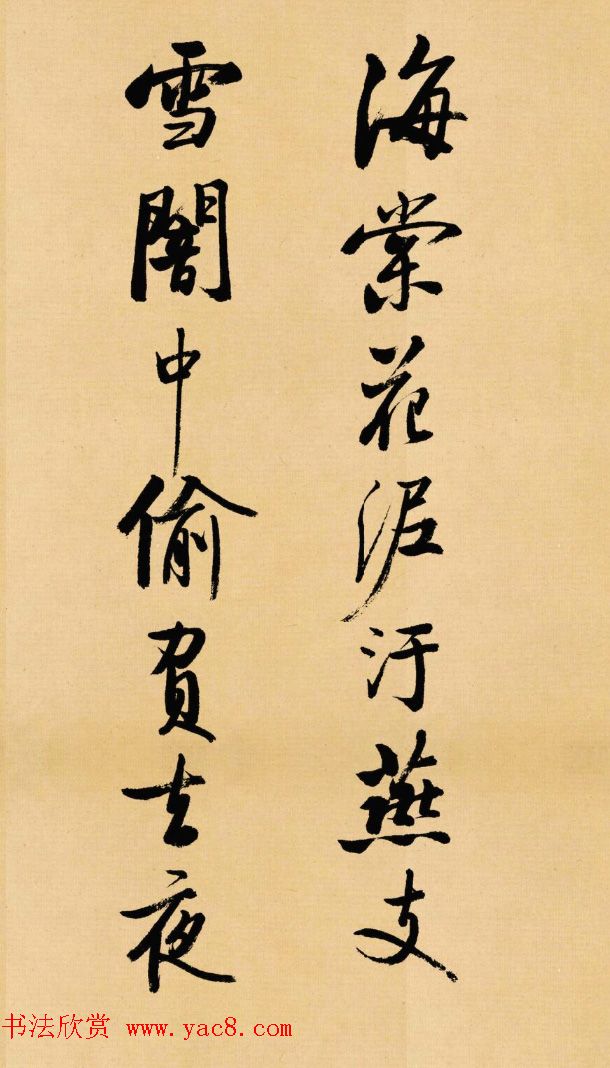 海棠花泥汙燕支
雪闇中偷負去夜
书法欣赏 www.yac8.com